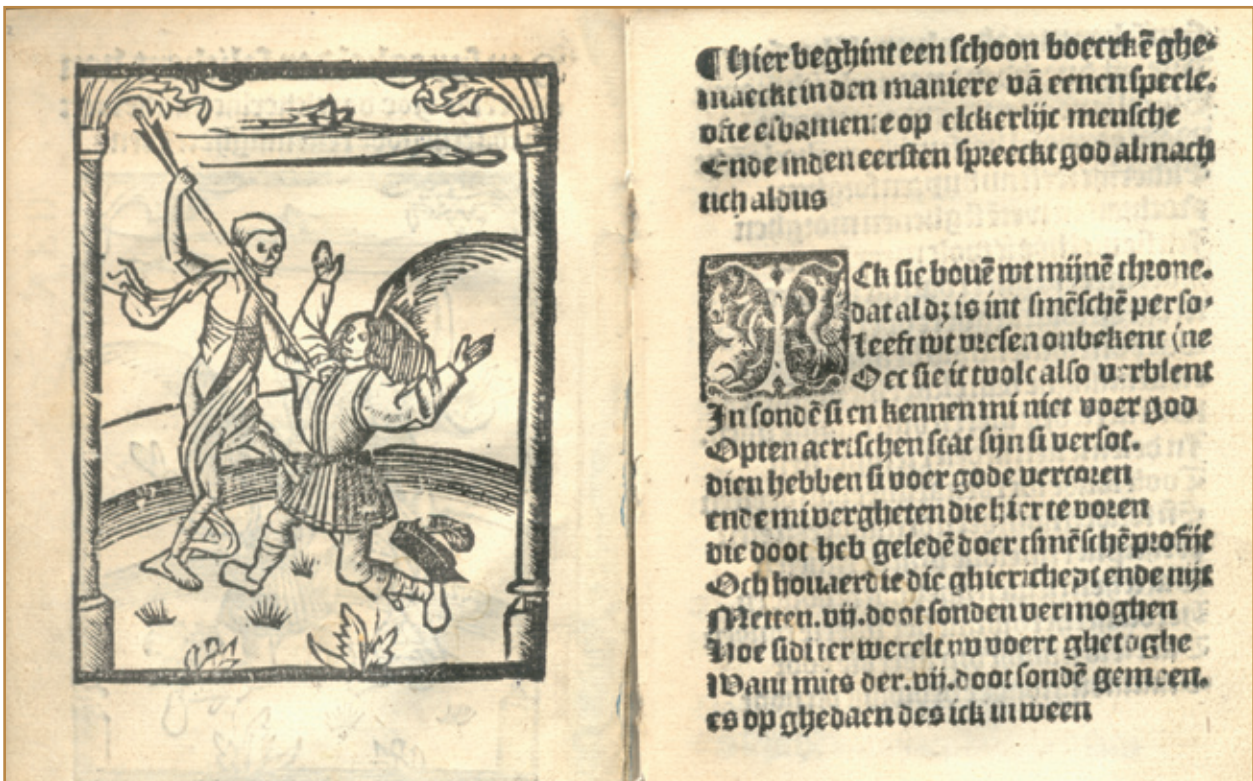 ¶ Hier beghint een schoon boecrkē ghe-
maeckt in den maniere vā eenen speele.
ofte esbamente op elckerlijc mensche
Ende inden eersten spreeckt god almach
tich aldus
ICk sie bouē wt mijnē throne.
dat al dʒ is int smēschē perso-
Leeft wt vresen onbekent (ne
Oec sie ic tvolc also verblent
In sondē si en kennen mi niet voer god
Opten aertschen scat sijn si versot.
dien hebben si voer gode vercoren
ende mi vergheten die hier te voren
die doot heb geledē doer tsmēschē profijt
Och houaerdie die ghiericheyt ende nijt
Metten .vij. doot sonden vermoghen
Hoe sidi ter werelt nv voert ghetoghē
Want mits der .vij. doot sondē gemeen.
es op ghedaen des ick in ween